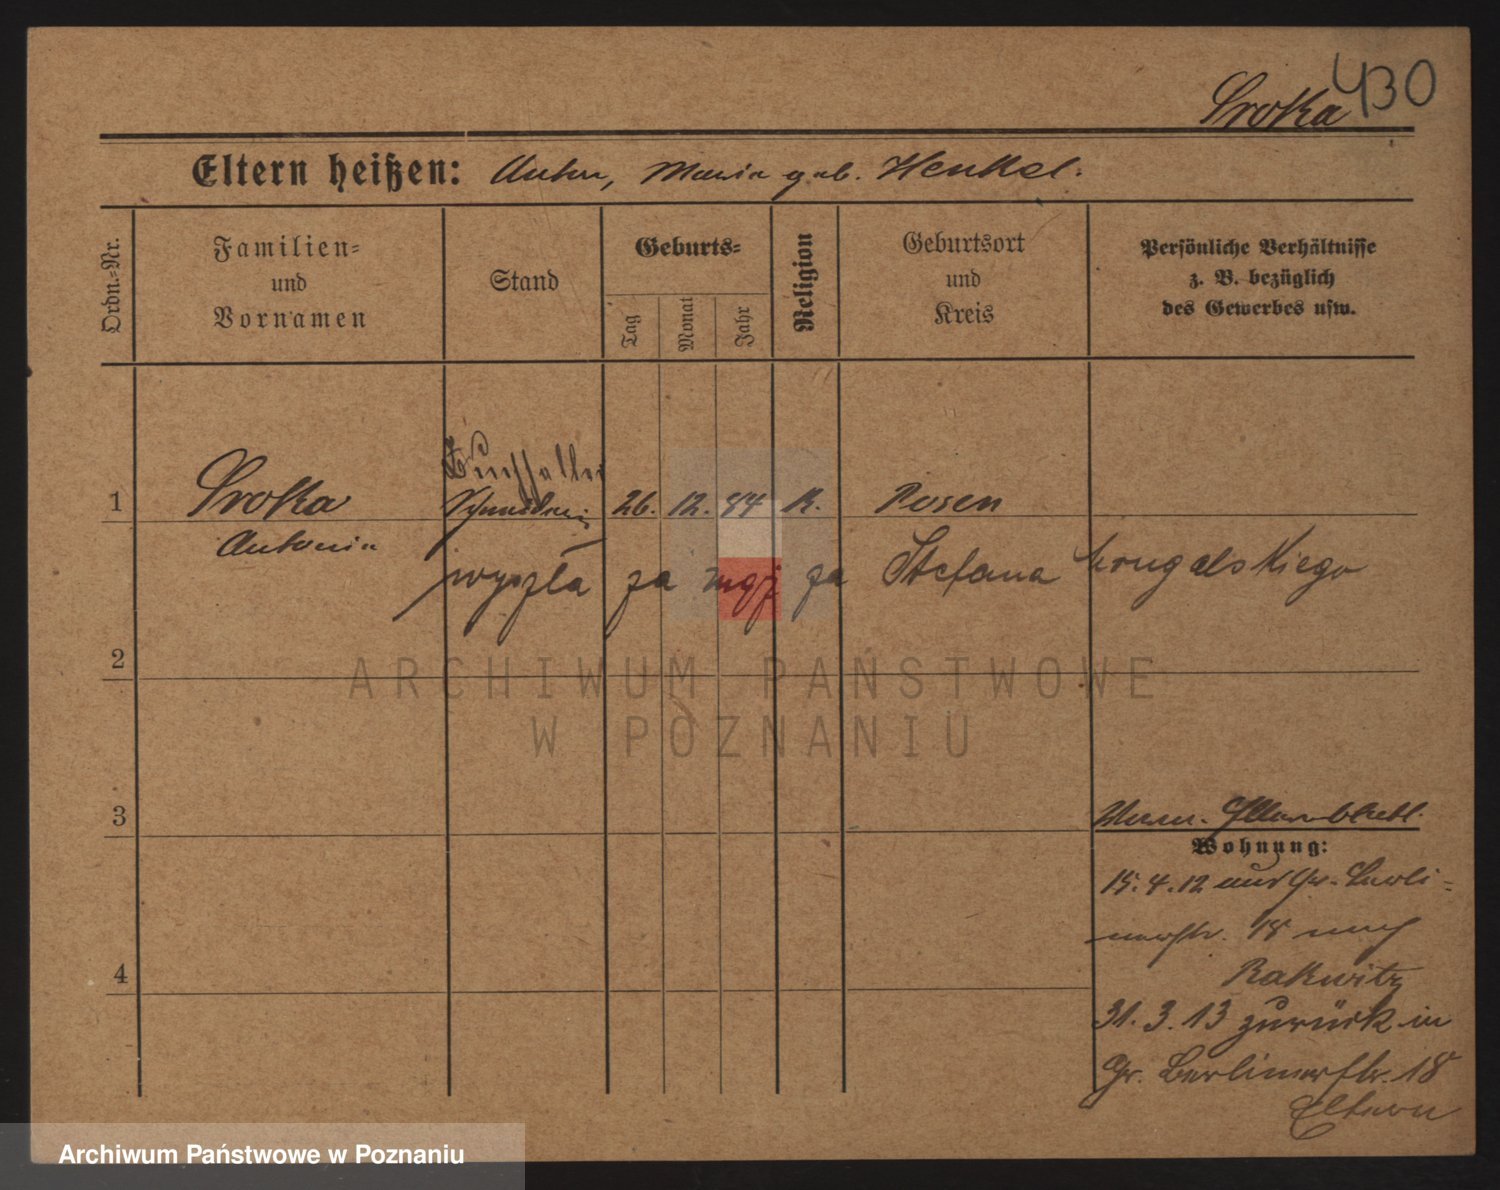 430
Sroka
Eltern heißen: Anton, Maria geb. Henkel.
Ordn.-Nr.
Familien-
und
Vornamen
Stand
Geburts-
Tag
Monat
Jahr
Religion
Geburtsort
und
Kreis
Persönliche Verhältnisse
z. B. bezüglich
des Gewerbes usw.
1
Sroka
Antonia
Schneiderin
26. 12. 84 K. Posen
wyszła za mąż za Stefana
2
3
4
Elternblatt.
Wohnung:
15.4.12 aus Gr. Berli-
nerstr. 18 nach
Rakwitz
31.3.13 zurück in
Gr. Berlinerstr. 18
Eltern
ARCHIWUM PAŃSTWOWE
W POZNANIU
Archiwum Państwowe w Poznaniu